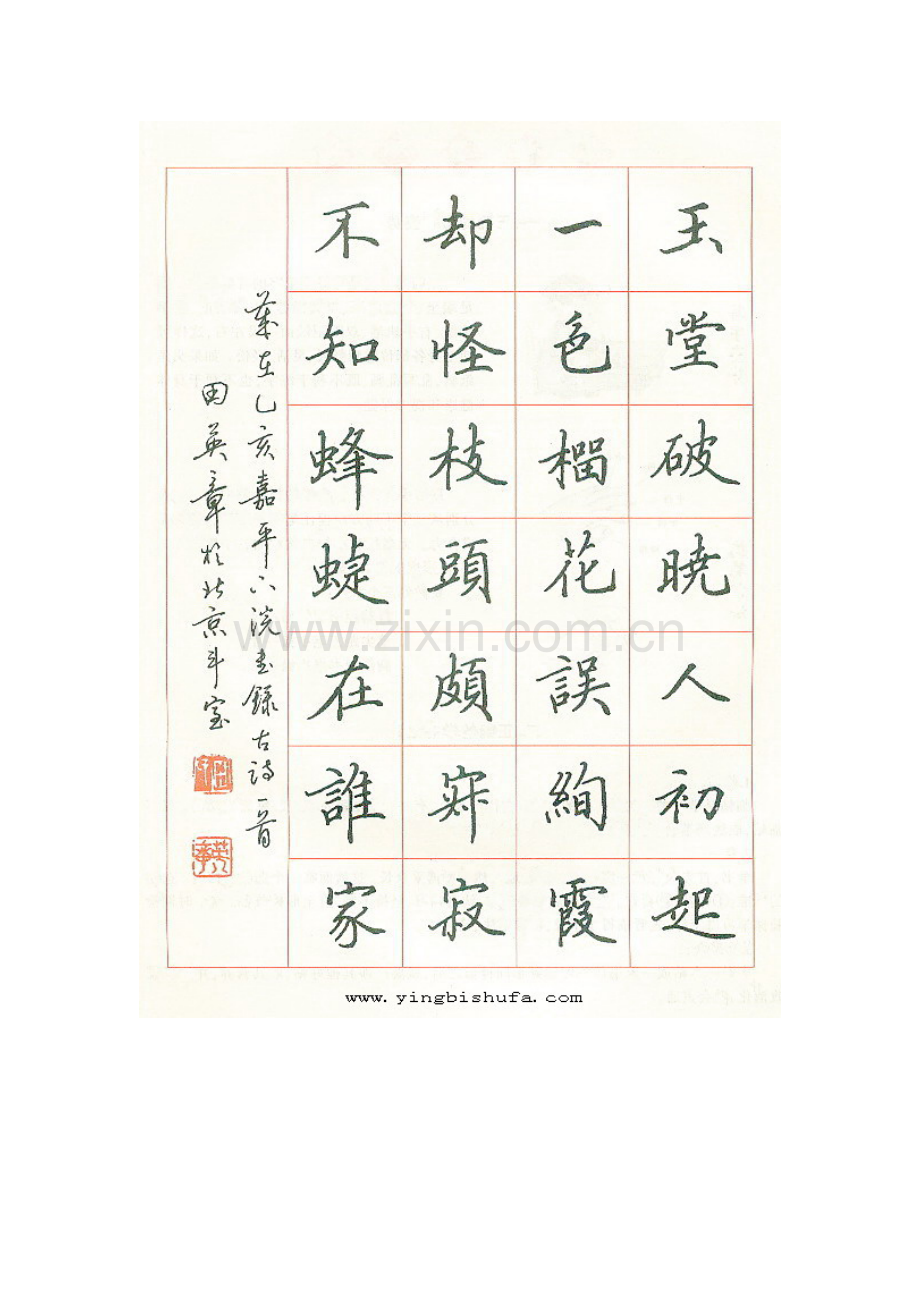 玉堂破曉人初起
一色榴花誤絢霞
却怪枝頭頗寂寂
不知蜂蜨在誰家
歲在乙亥嘉平下浣書錄古詩一首
田英章於北京斗室
www.zixin.com.cn
www.yingbishufa.com